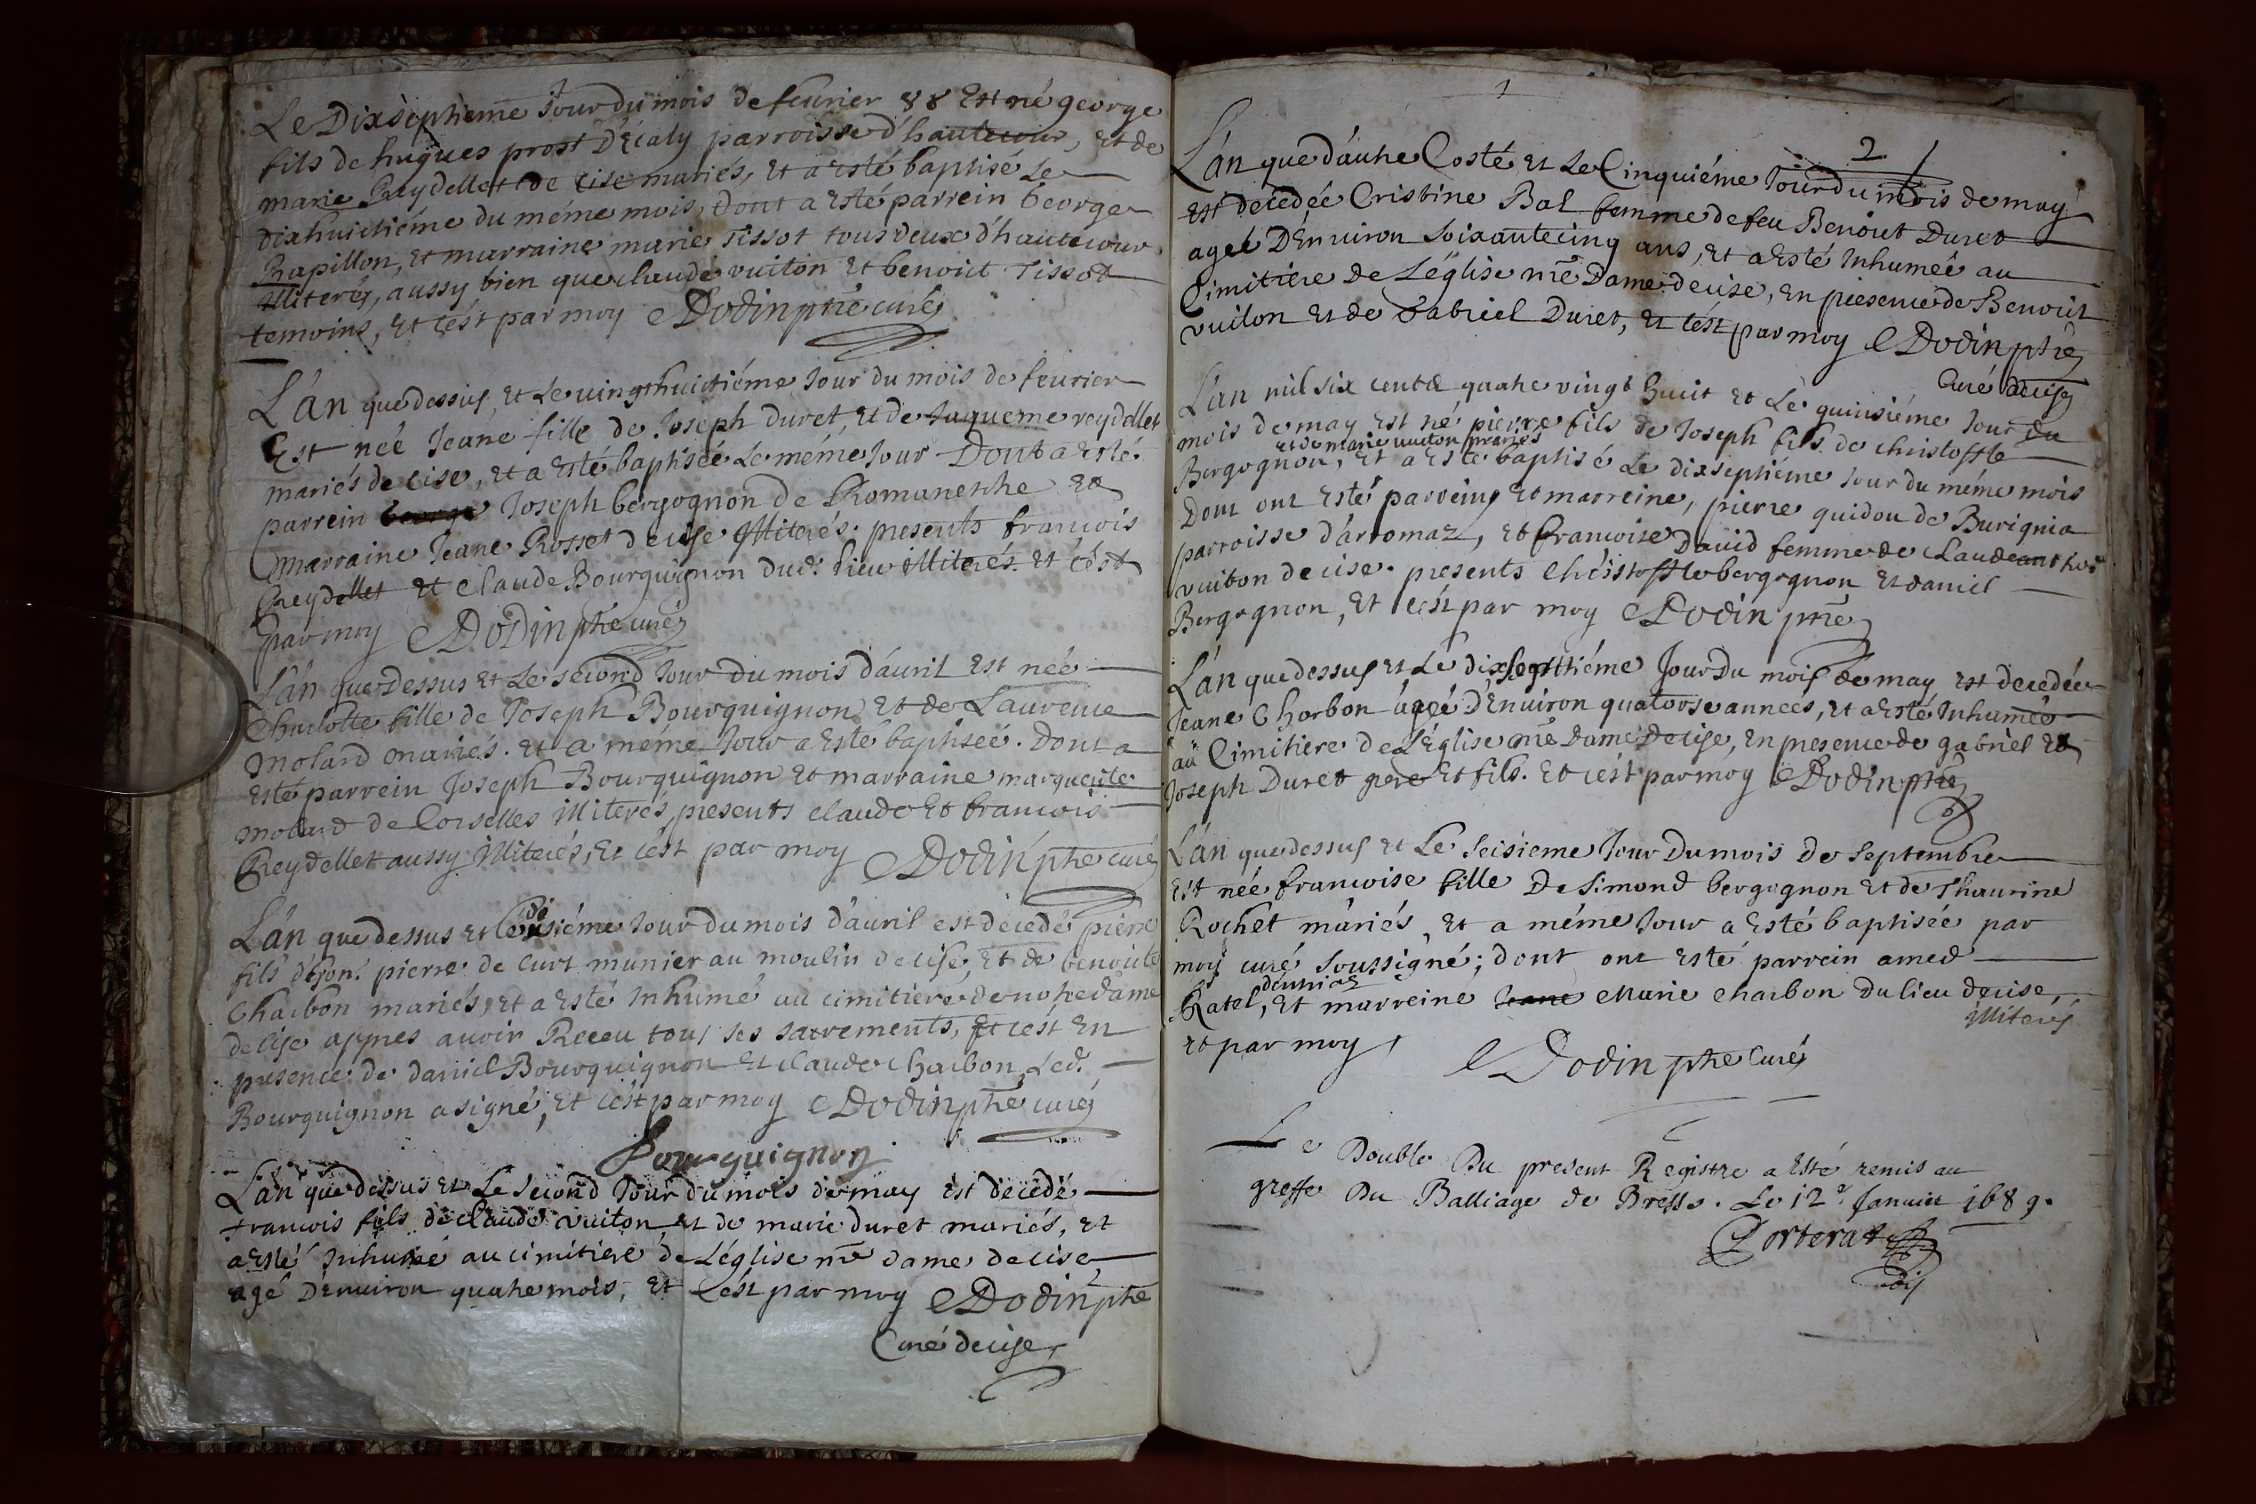 Le Dixseptieme Jour du mois de feurier 88 Est né george
fils de hugues prost D'Ecaly parroisse d'hautecour, et de
marie Reydellet de cise mariés, et a esté baptisé Le
dixhuictiéme du méme mois, dont a esté parrein George
Rapillon, et marraine marie Tissot tous deux d'hautecour
illiterés, aussy bien que claude vuiton et benoict Tissot
temoins, Et c'est par moy Dodin ptre curé
L'an que dessus, et Le vingthuictiéme Jour du mois de feurier
Est née Jeane fille de Joseph Duret, et de Jaqueme reydellet
mariés de cise, et a esté baptisée Le méme Jour Dont a esté
parrein Joseph bergognon de Romanesche et
marraine Jeane Rosset de cise illiterés. presents francois
Reydellet et claude Bourguignon dud. lieu illiterés. et c'est
par moy Dodin ptre curé
L'an que dessus et Le second Jour du mois d'auril est née
charlotte fille de Joseph Bourguignon et de Laurence
molard mariés. et a méme Jour a esté baptisée. Dont a
esté parrein Joseph Bourguignon et marraine marguerite
molard de Corselles illiterés, presents claude et francois
Reydellet aussy illiterés, et c'est par moy Dodin ptre curé
L'an que dessus et Le siéme Jour du mois d'auril est décedé pierre
fils d' pierre de Curt munier au moulin de cise, et de benoite
Charbon mariés, et a esté Inhumé au cimitiere de notre dame
de cise appres auoir Receu tous ses sacrements, et c'est En
presence de daniel Bourguignon et claude charbon, Led.
Bourguignon a signé, et c'est par moy Dodin ptre curé
Bourguignon
L'an que dessus et Le second Jour du mois de may est décedé
francois fils de claude vuiton et de marie duret mariés, et
a esté Inhumé au cimitiere de L'église nre dame de cise,
agé D'enuiron quatre mois, et c'est par moy Dodin ptre
Curé de cise
2
L'an que d'autre Costé et Le Cinquiéme Jour du mois de may
est decedée Cristine Bal femme de feu Benoict Duret
agée D'Enuiron soixante cinq ans, et a esté Inhumée au
Cimitiere de L'église nre Dame de cise, en presence de Benoict
vuiton et de Gabriel Duret, et c'est par moy Dodin ptre
Curé de cise
L'an mil six cents quatre vingt huit et Le quinsiéme Jour du
mois de may est né pierre fils de Joseph fils de christoffle
et de marie vuiton mariés
Bergognon, et a esté baptisé Le dixseptiéme Jour du méme mois
Dont ont esté parreins et marreine, pierre guidou de Burignia
parroisse d'arromaz, et francoise David femme de Claude
vuiton de cise. presents christoffle bergognon et daniel
Bergognon, et c'est par moy Dodin ptre
L'an que dessus et Le dixseptiéme Jour du mois de may est decedée
Jeane Charbon agée D'Enuiron quatorse annees, et a esté Inhumée
au Cimitiere de L'église nre Dame De cise, en presence de gabriel et
Joseph Duret pere et fils. et c'est par moy Dodin ptre
L'an que dessus et Le seisieme Jour Du mois de septembre
est née francoise fille De simond bergognon et de Thaurine
Rochet mariés, et a méme Jour a esté baptisée par
moy curé soussigné; dont ont esté parrein amed
Ratel, et marreine Jeane marie charbon du lieu de cise,
illiterés
et par moy, Dodin ptre Curé
Le Double Du present Registre a esté remis au
greffe Du Balliage de Bresse. Le 12e Januier 1689.